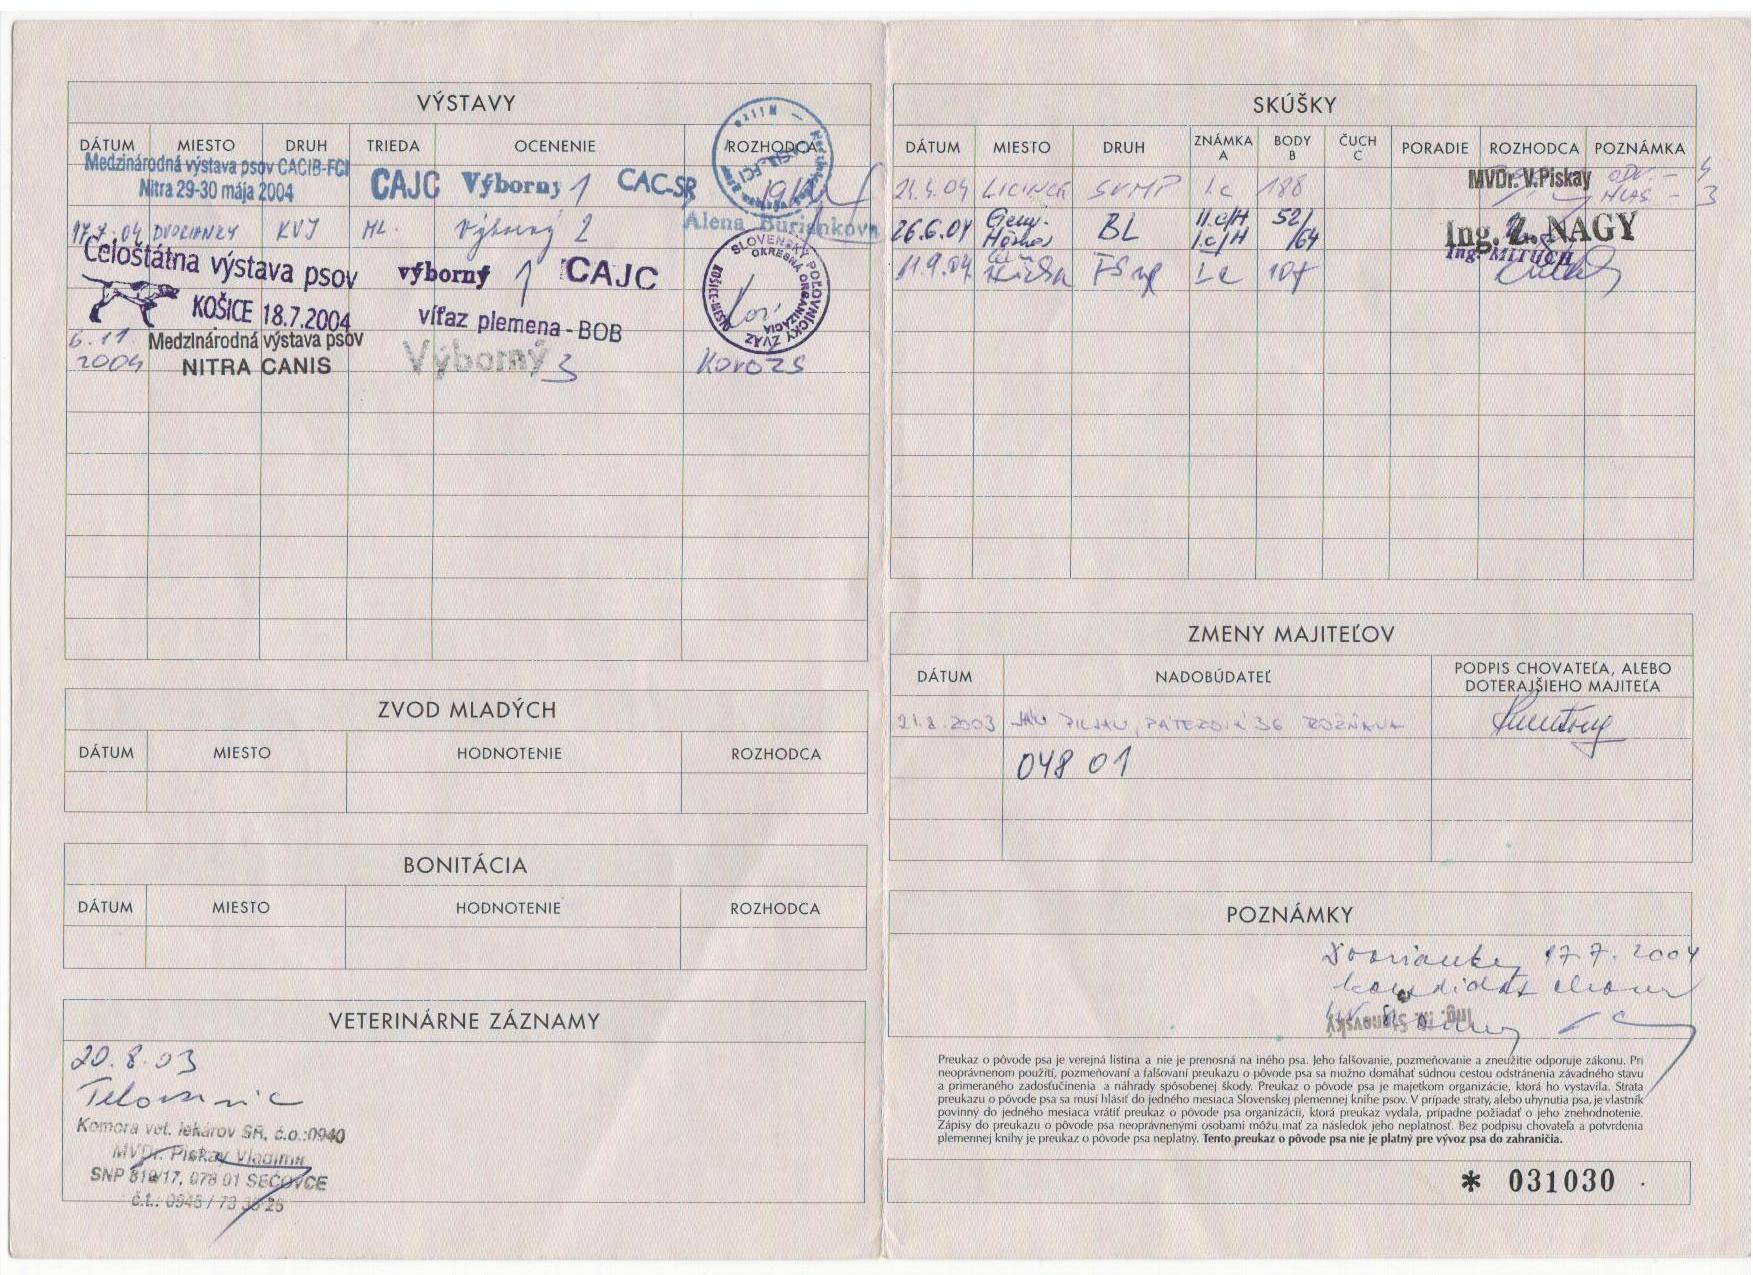 VÝSTAVY
DÁTUM MIESTO DRUH TRIEDA OCENENIE ROZHODCA
Medzinárodná výstava psov CACIB-FCI
Nitra 29-30 mája 2004 CAJC Výborný 1 CAC-SR
Alena Buriánková
17.7.04 DVORIANKY KVJ ML. Výborný 2
Celoštátna výstava psov výborný 1 CAJC
KOŠICE 18.7.2004 víťaz plemena - BOB
SLOVENSKÝ POĽOVNÍCKY ZVÄZ
OKRESNÁ ORGANIZÁCIA
6.11. Medzinárodná výstava psov
2004 NITRA CANIS Výborný 3
ZVOD MLADÝCH
DÁTUM MIESTO HODNOTENIE ROZHODCA
BONITÁCIA
DÁTUM MIESTO HODNOTENIE ROZHODCA
VETERINÁRNE ZÁZNAMY
20.8.03
Komora vet. lekárov SR, č.o.:0940
MVDr. Piskay Vladimír
SNP 819/17, 078 01 SEČOVCE
SKÚŠKY
DÁTUM MIESTO DRUH ZNÁMKA A BODY B ČUCH C PORADIE ROZHODCA POZNÁMKA
21.4.04 LICINCE SVMP I.c 188 MVDr. V.Piskay
26.6.04 BL II.c/H 52/
I.c/H /64 Ing. Z. NAGY
11.9.04 I.c 107 Ing. MITRÍCH
ZMENY MAJITEĽOV
DÁTUM NADOBÚDATEĽ PODPIS CHOVATEĽA, ALEBO
DOTERAJŠIEHO MAJITEĽA
21.8.2003 JÁN 36 ROŽŇAVA
048 01
POZNÁMKY
Dvorianky 17.7.2004
kandidát chovu
Preukaz o pôvode psa je verejná listina a nie je prenosná na iného psa. Jeho falšovanie, pozmeňovanie a zneužitie odporuje zákonu. Pri
neoprávnenom použití, pozmeňovaní a falšovaní preukazu o pôvode psa sa možno domáhať súdnou cestou odstránenia závadného stavu
a primeraného zadosťučinenia a náhrady spôsobenej škody. Preukaz o pôvode psa je majetkom organizácie, ktorá ho vystavila. Strata
preukazu o pôvode psa sa musí hlásiť do jedného mesiaca Slovenskej plemennej knihe psov. V prípade straty, alebo uhynutia psa, je vlastník
povinný do jedného mesiaca vrátiť preukaz o pôvode psa organizácii, ktorá preukaz vydala, prípadne požiadať o jeho znehodnotenie.
Zápisy do preukazu o pôvode psa neoprávnenými osobami môžu mať za následok jeho neplatnosť. Bez podpisu chovateľa a potvrdenia
plemennej knihy je preukaz o pôvode psa neplatný. Tento preukaz o pôvode psa nie je platný pre vývoz psa do zahraničia.
* 031030